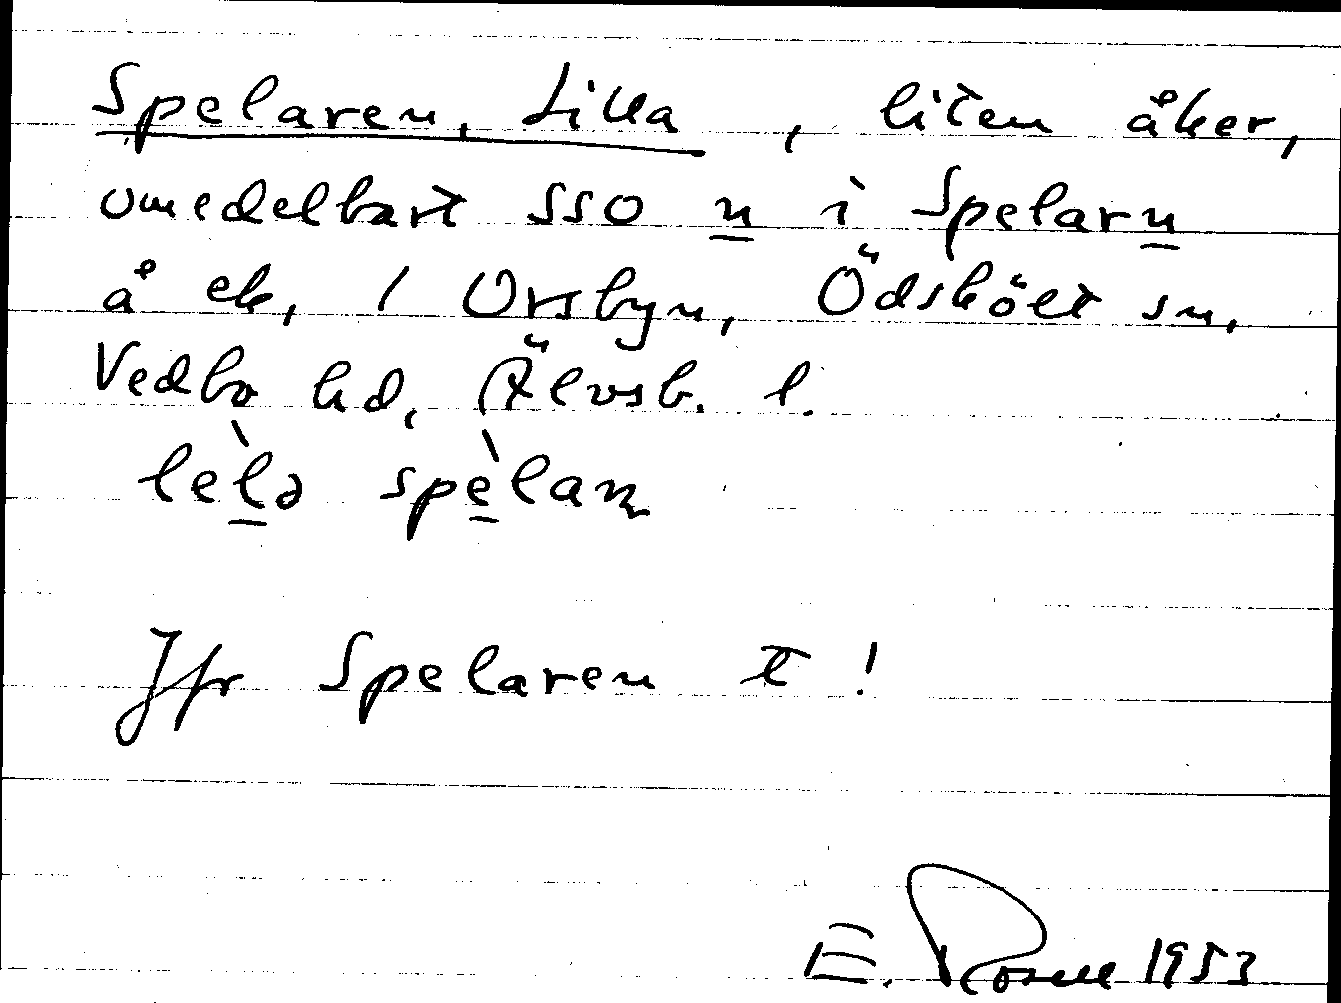 Spelaren, Lilla, liten åker,
omedelbart SSO n i Spelarn
å ek, 1 Orsbyn, Ödskölt sn,
Vedbo hd, Älvsb. l.
lèlə spèlaṇ
Jfr Spelaren t!
E. Rosell 1953